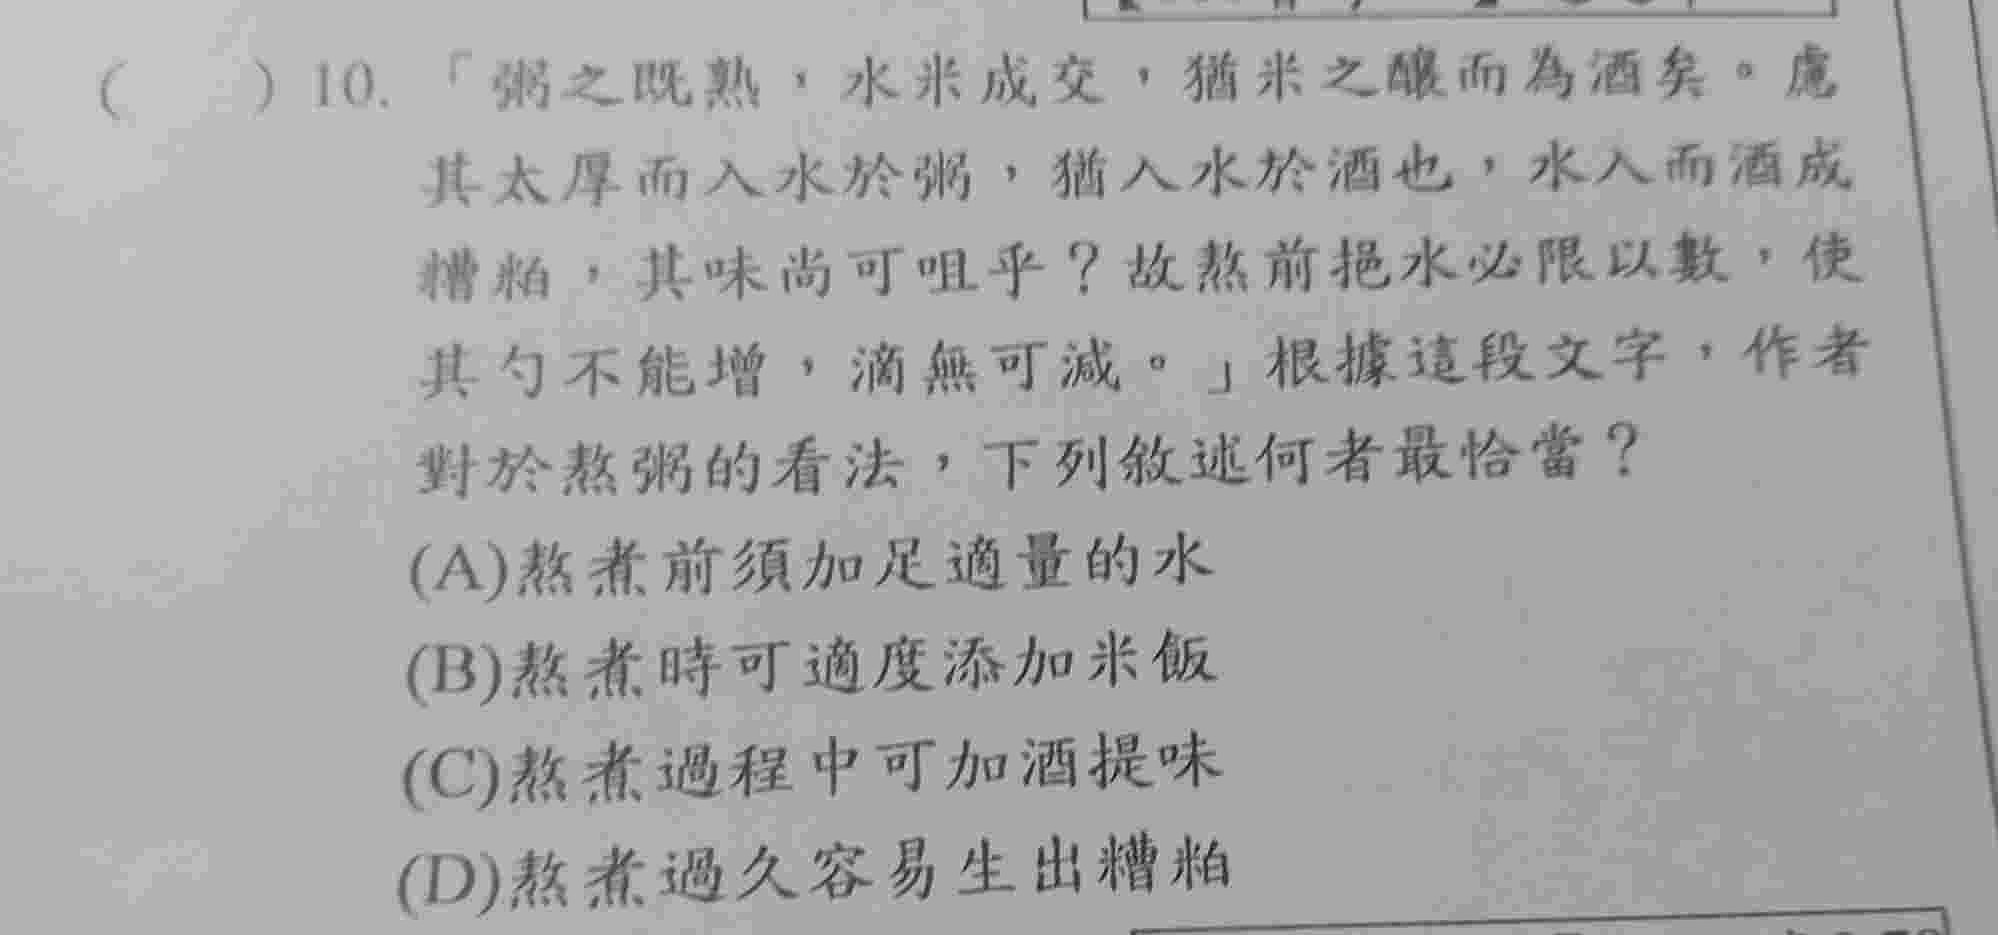 (　　) 10. 「粥之既熟，水米成交，猶米之釀而為酒矣。慮
其太厚而入水於粥，猶入水於酒也，水入而酒成
糟粕，其味尚可咀乎？故熬前挹水必限以數，使
其勺不能增，滴無可減。」根據這段文字，作者
對於熬粥的看法，下列敘述何者最恰當？
(A)熬煮前須加足適量的水
(B)熬煮時可適度添加米飯
(C)熬煮過程中可加酒提味
(D)熬煮過久容易生出糟粕